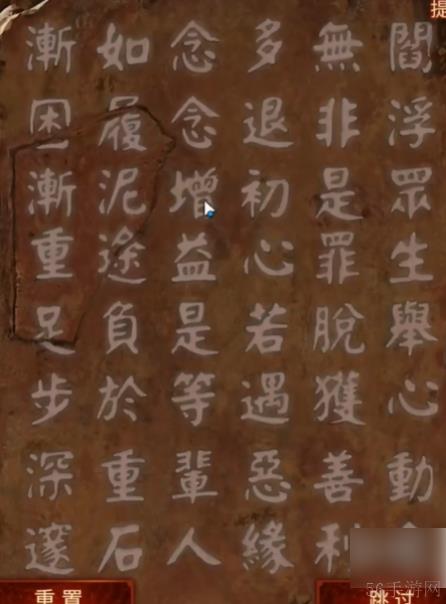 提
閻浮眾生舉心動
無非是罪脫獲善利
多退初心若遇惡緣
念念增益是等輩人
如履泥途負於重石
漸困漸重足步深邃
重置
跳过
56手游网